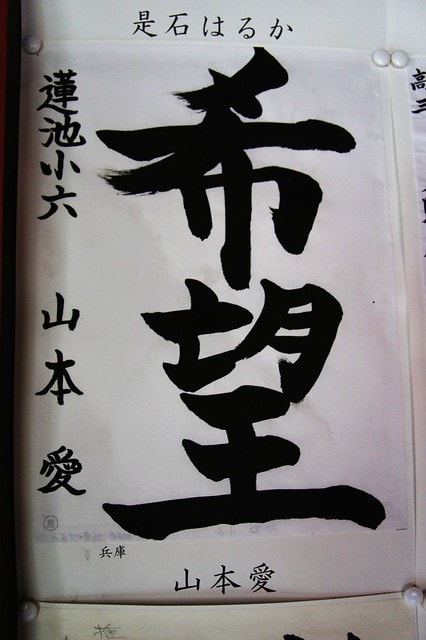 是石はるか
希望
蓮池小六 山本愛
兵庫
山本愛
高三